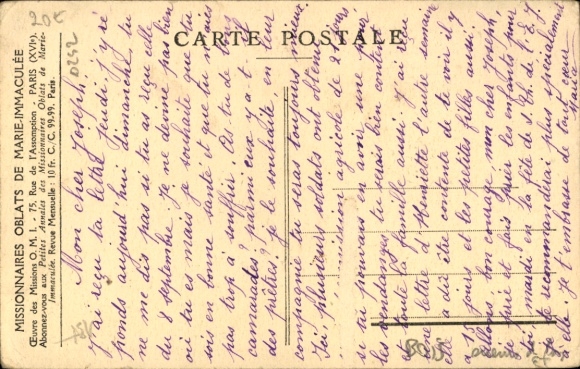 CARTE POSTALE
MISSIONNAIRES OBLATS DE MARIE-IMMACULÉE
Œuvre des Missions O. M. I. - 75, Rue de l'Assomption - PARIS (XVIe).
Abonnez-vous aux Petites Annales des Missionnaires Oblats de Marie-
Immaculée. Revue Mensuelle : 10 fr. C./C. 99.99. Paris
20€
Mon cher Joseph,
J'ai reçu ta lettre jeudi, j'y ré
ponds aujourd'hui dimanche, tu
ne me dis pas si tu as reçu celle
du 8 septembre je ne devine pas bien
où tu es mais je souhaite que tu
sois en bonne santé et que tu n'aies
pas trop à souffrir. Et tu de bons
camarades? parmi eux y a-t-il
des prêtres? je le souhaite, en leur
compagnie tu serais toujours mieux.
Ici, soldats ont obtenu
permission agricole de 2 jours
si tu pouvais en avoir une pour
les vendanges tu serais bien content
et toute la famille aussi. J'ai reçu
une lettre d'Henriette l'autre semaine
elle a dû être contente de te voir il y
a 15 jours et les petites filles aussi.
Allons bon courage, mon cher Joseph
je prie et fais prier les enfants pour
toi mardi en la fête de S. Th. de l'E. J.
je te recommanderai plus spécialement
à elle je t'embrasse de tout cœur